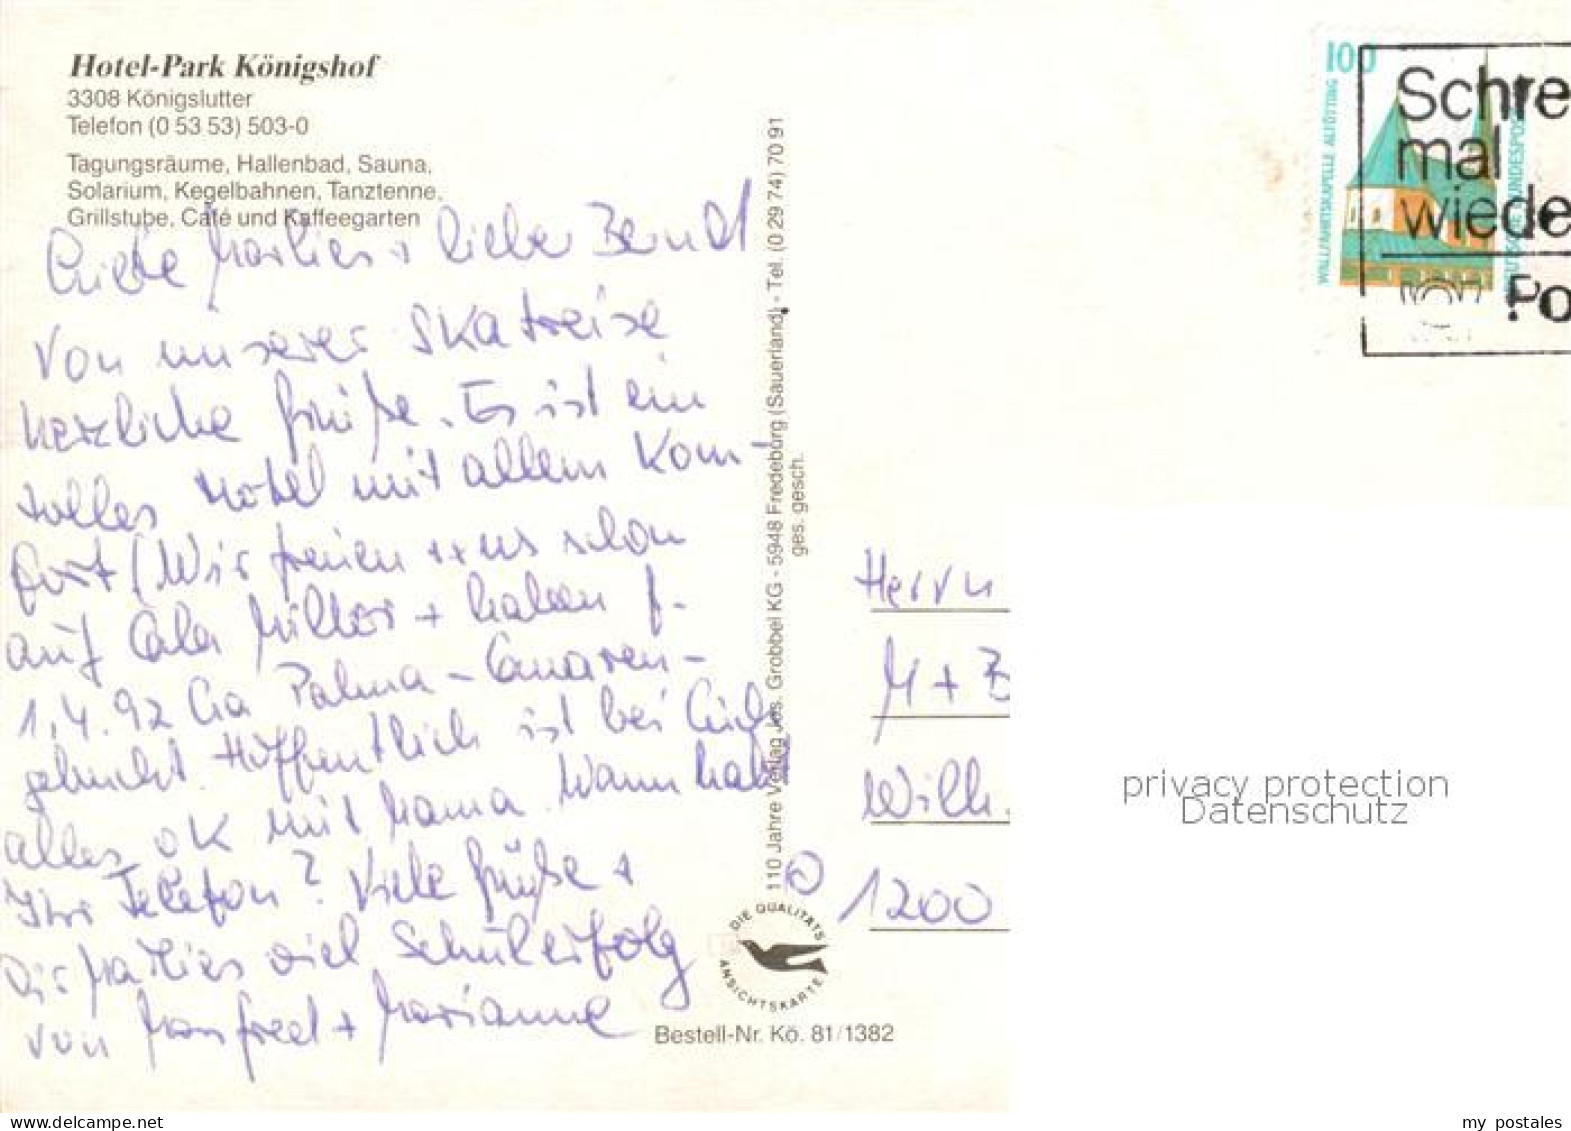 Hotel-Park Königshof
3308 Königslutter
Telefon (0 53 53) 503-0
Tagungsräume, Hallenbad, Sauna,
Solarium, Kegelbahnen, Tanztenne,
Grillstube, Café und Kaffeegarten
Liebe Marlies + lieber Berndt
Von unserer Skatreise
herzliche Grüße. Es ist ein
tolles Hotel mit allem Kom-
fort (Wir freuen uns schon
auf Cala Millor + haben f.
1.4.92 La Palma - Canaren -
gebucht. Hoffentlich ist bei Euch
alles ok mit Mama. Wann habt
Ihr Telefon? Viele Grüße +
Dir Marlies viel Schulerfolg
von Manfred + Marianne
110 Jahre Verlag Jos. Grobbel KG - 5948 Fredeburg (Sauerland) - Tel. (0 29 74) 70 91
ges. gesch.
DIE QUALITÄTS
ANSICHTSKARTE
Bestell-Nr. Kö. 81/1382
100
WALLFAHRTSKAPELLE ALTÖTTING
DEUTSCHE BUNDESPOST
Schre
mal
wiede
Po
Herrn
M + B
Wilh.
1200
privacy protection
Datenschutz
my postales